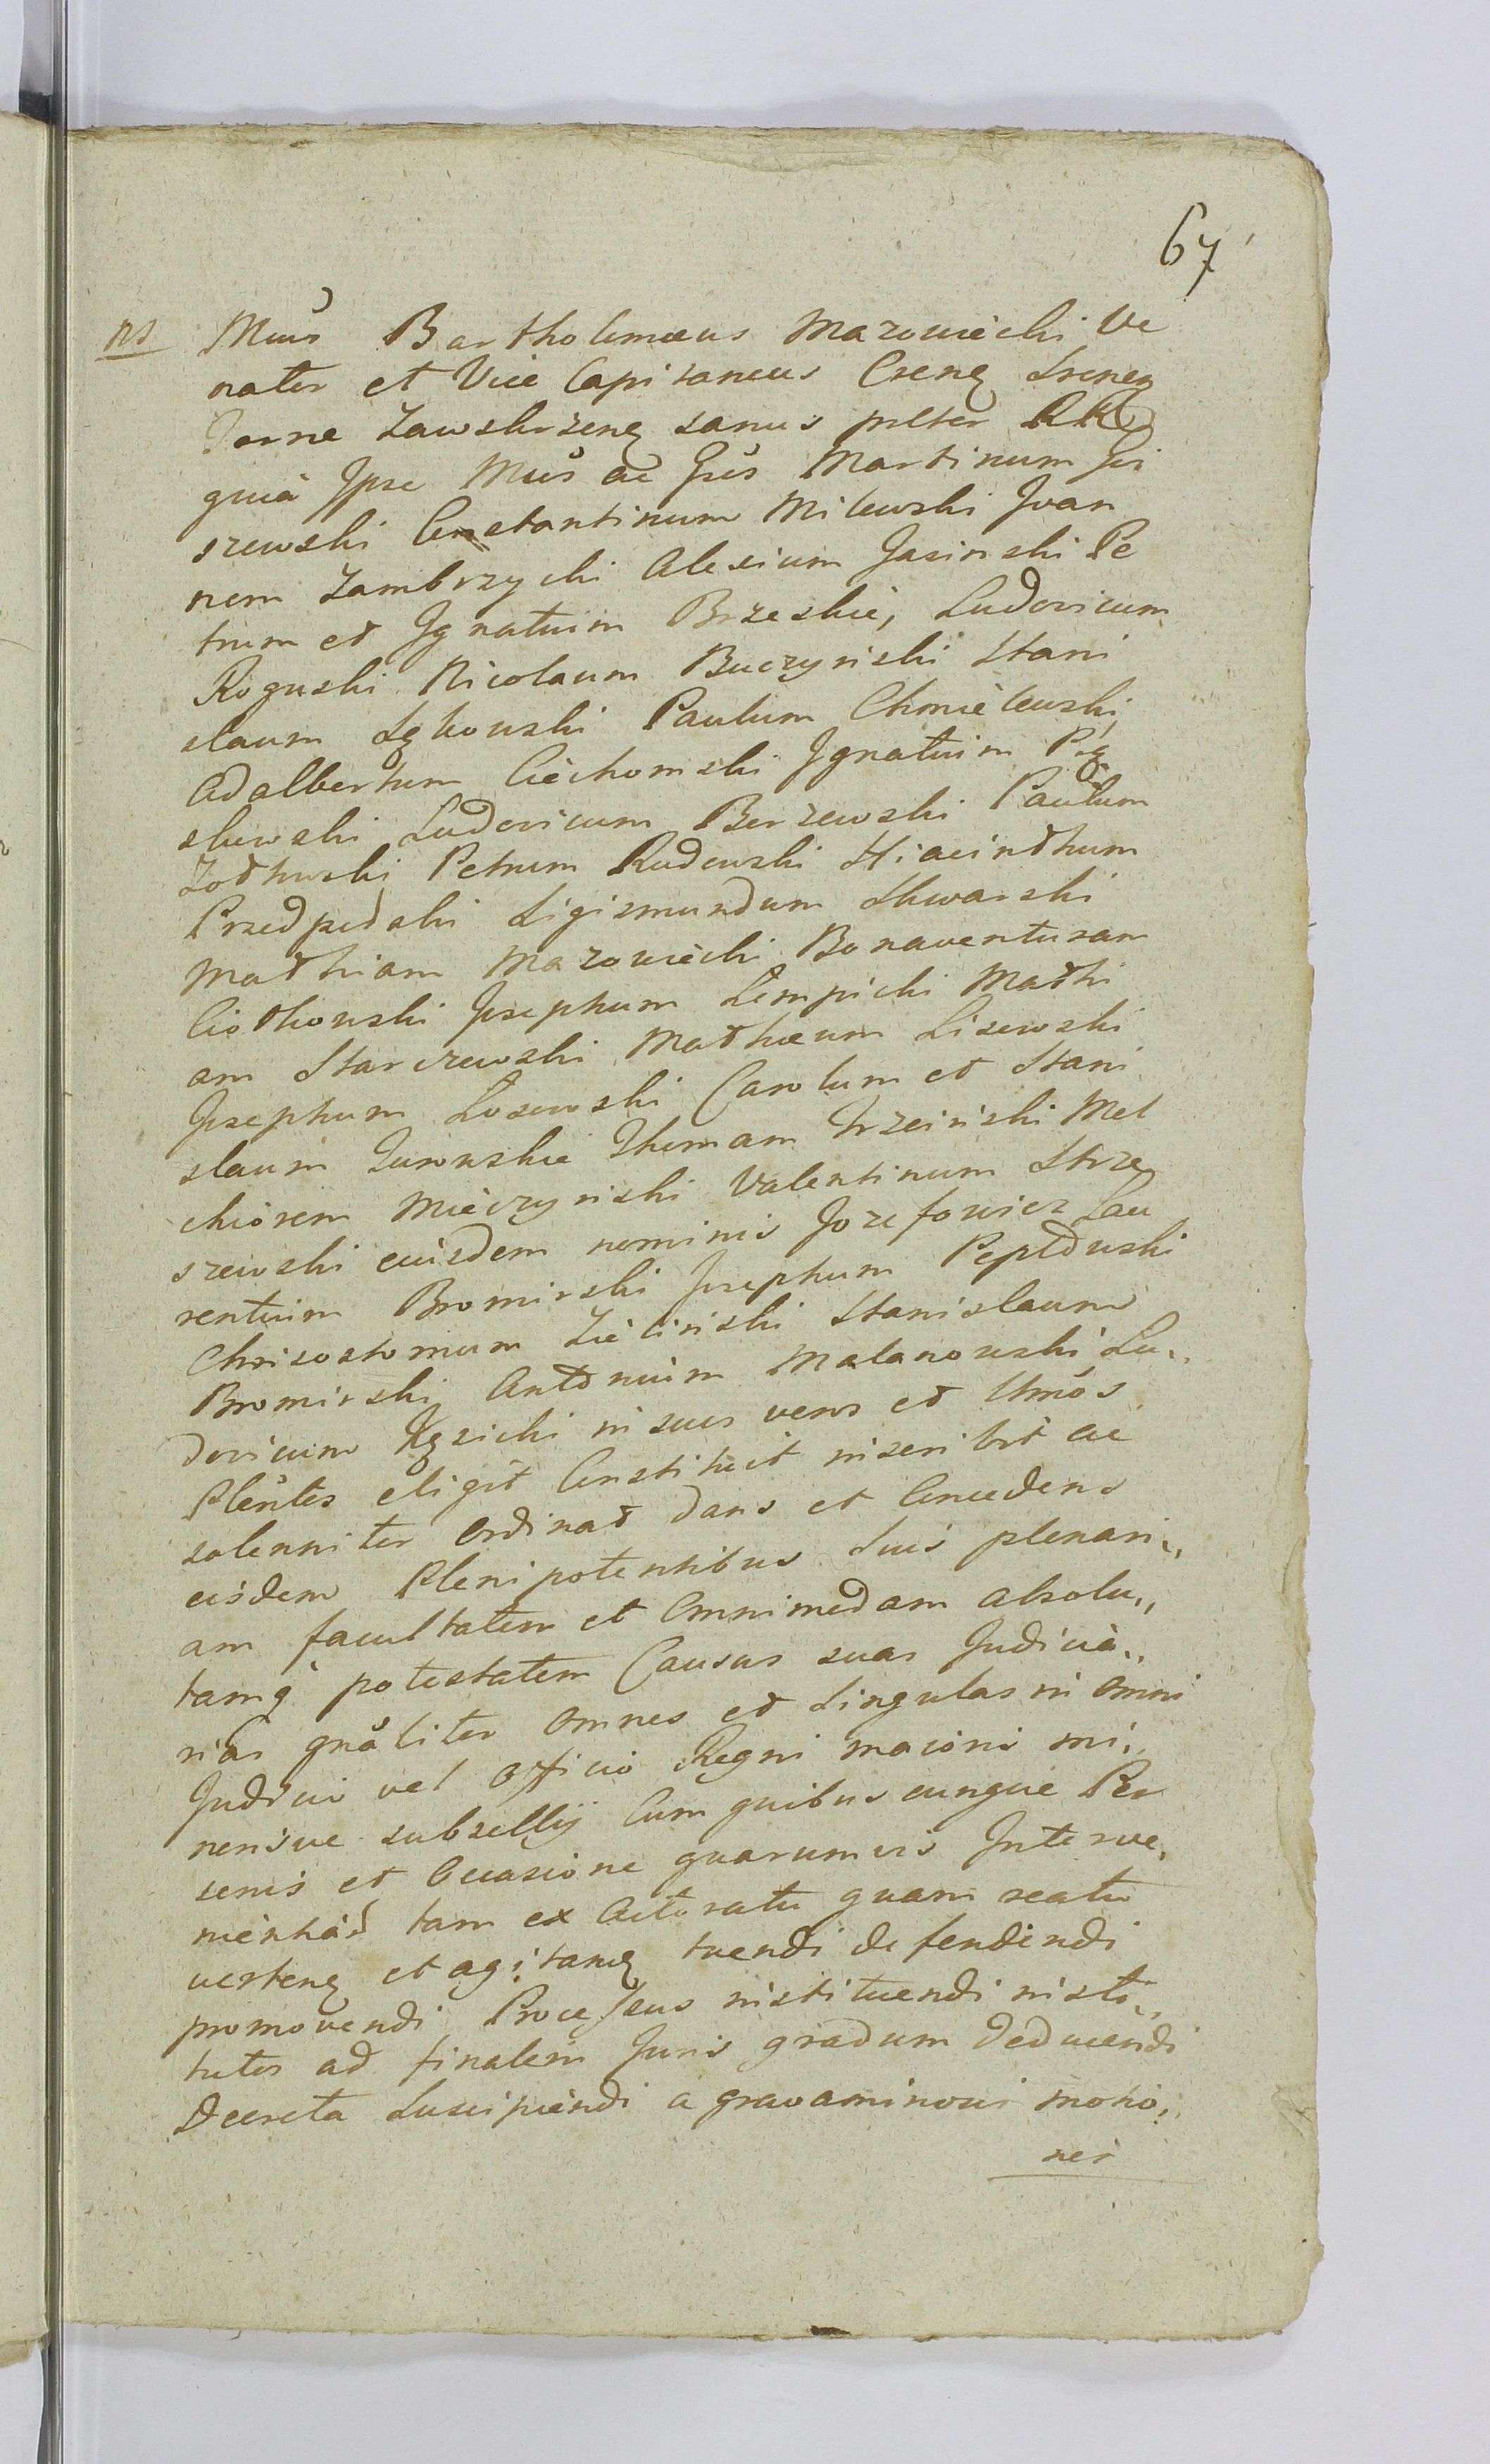 67
ns Mũs Bartholomæus Mazowiecki Ve
nator et Vice Capitaneus Csenę Srenen
Terrae Zawskrzenę sanus prster RR
quia Ipse Mũs ac Grũs Martinum Gi
szewski Constantinum Milewski Joan
nem Zambrzycki Alexium Jasinski Pe
trum et Ignatium Brzeskie, Ludovicum
Roguski Nicolaum Buczynski Stani
slaum Lękowski Paulum Chmielewski
Adalbertum Ciechomski Ignatium Pię
skowski Ludovicum Berzewski Paulum
Zothowski Petrum Rudowski Hiacinthum
Przedpelski Sigismundum Skwarski
Mathiam Mazowiecki Bonaventuram
Ciołkowski Josephum Lempicki Mathi
am Starczewski Mathæum Lisewski
Josephum Losewski Carolum et Stani
slaum Zurowskie Thomam Trzcinski Mel
chiorem Mieczynski Valentinum Strze
szewski euisdem nominis Jozefowicz Lau
rentium Bromirski Josephum Peplowski
Chrisostomum Zielinski Stanislaum
Bromirski Antonium Malanowski Lu„
dovicum Kęsicki in suos veros et Ltmos
Plentes eligit Constituit inscribit ac
solenniter Ordinat dans et Concedens
eisdem Plenipotentibus Suis plenari„
am facultatem et Omnimodam absolu„
tamq̃ potestatem Causas suas Judicia„
rias gnãliter Omnes et Singulas in Omni
Judicio vel Officio Regni maioris mi„
norisve subsellij Cum quibuscunque Per
sonis et Occasione quarumvis Interve„
nientiar̃ tam ex Actoratu quam reatu
vertenę et agitanę tuendi defendendi
promovendi Processus instituendi insti„
tutos ad finalem Juris gradum deducendi
Decreta Suscipiendi a gravaminosis motio„
nes